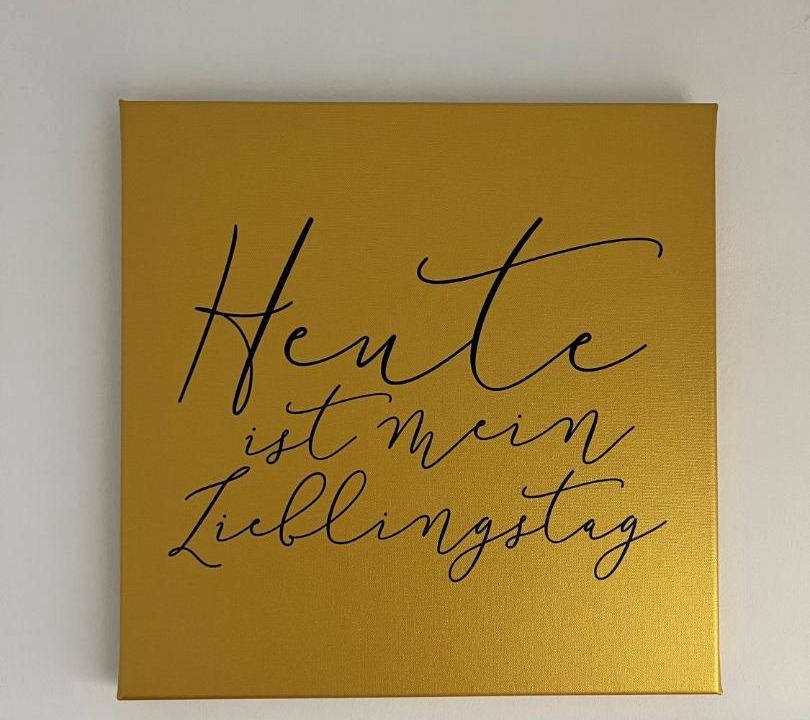 Heute
ist mein
Lieblingstag